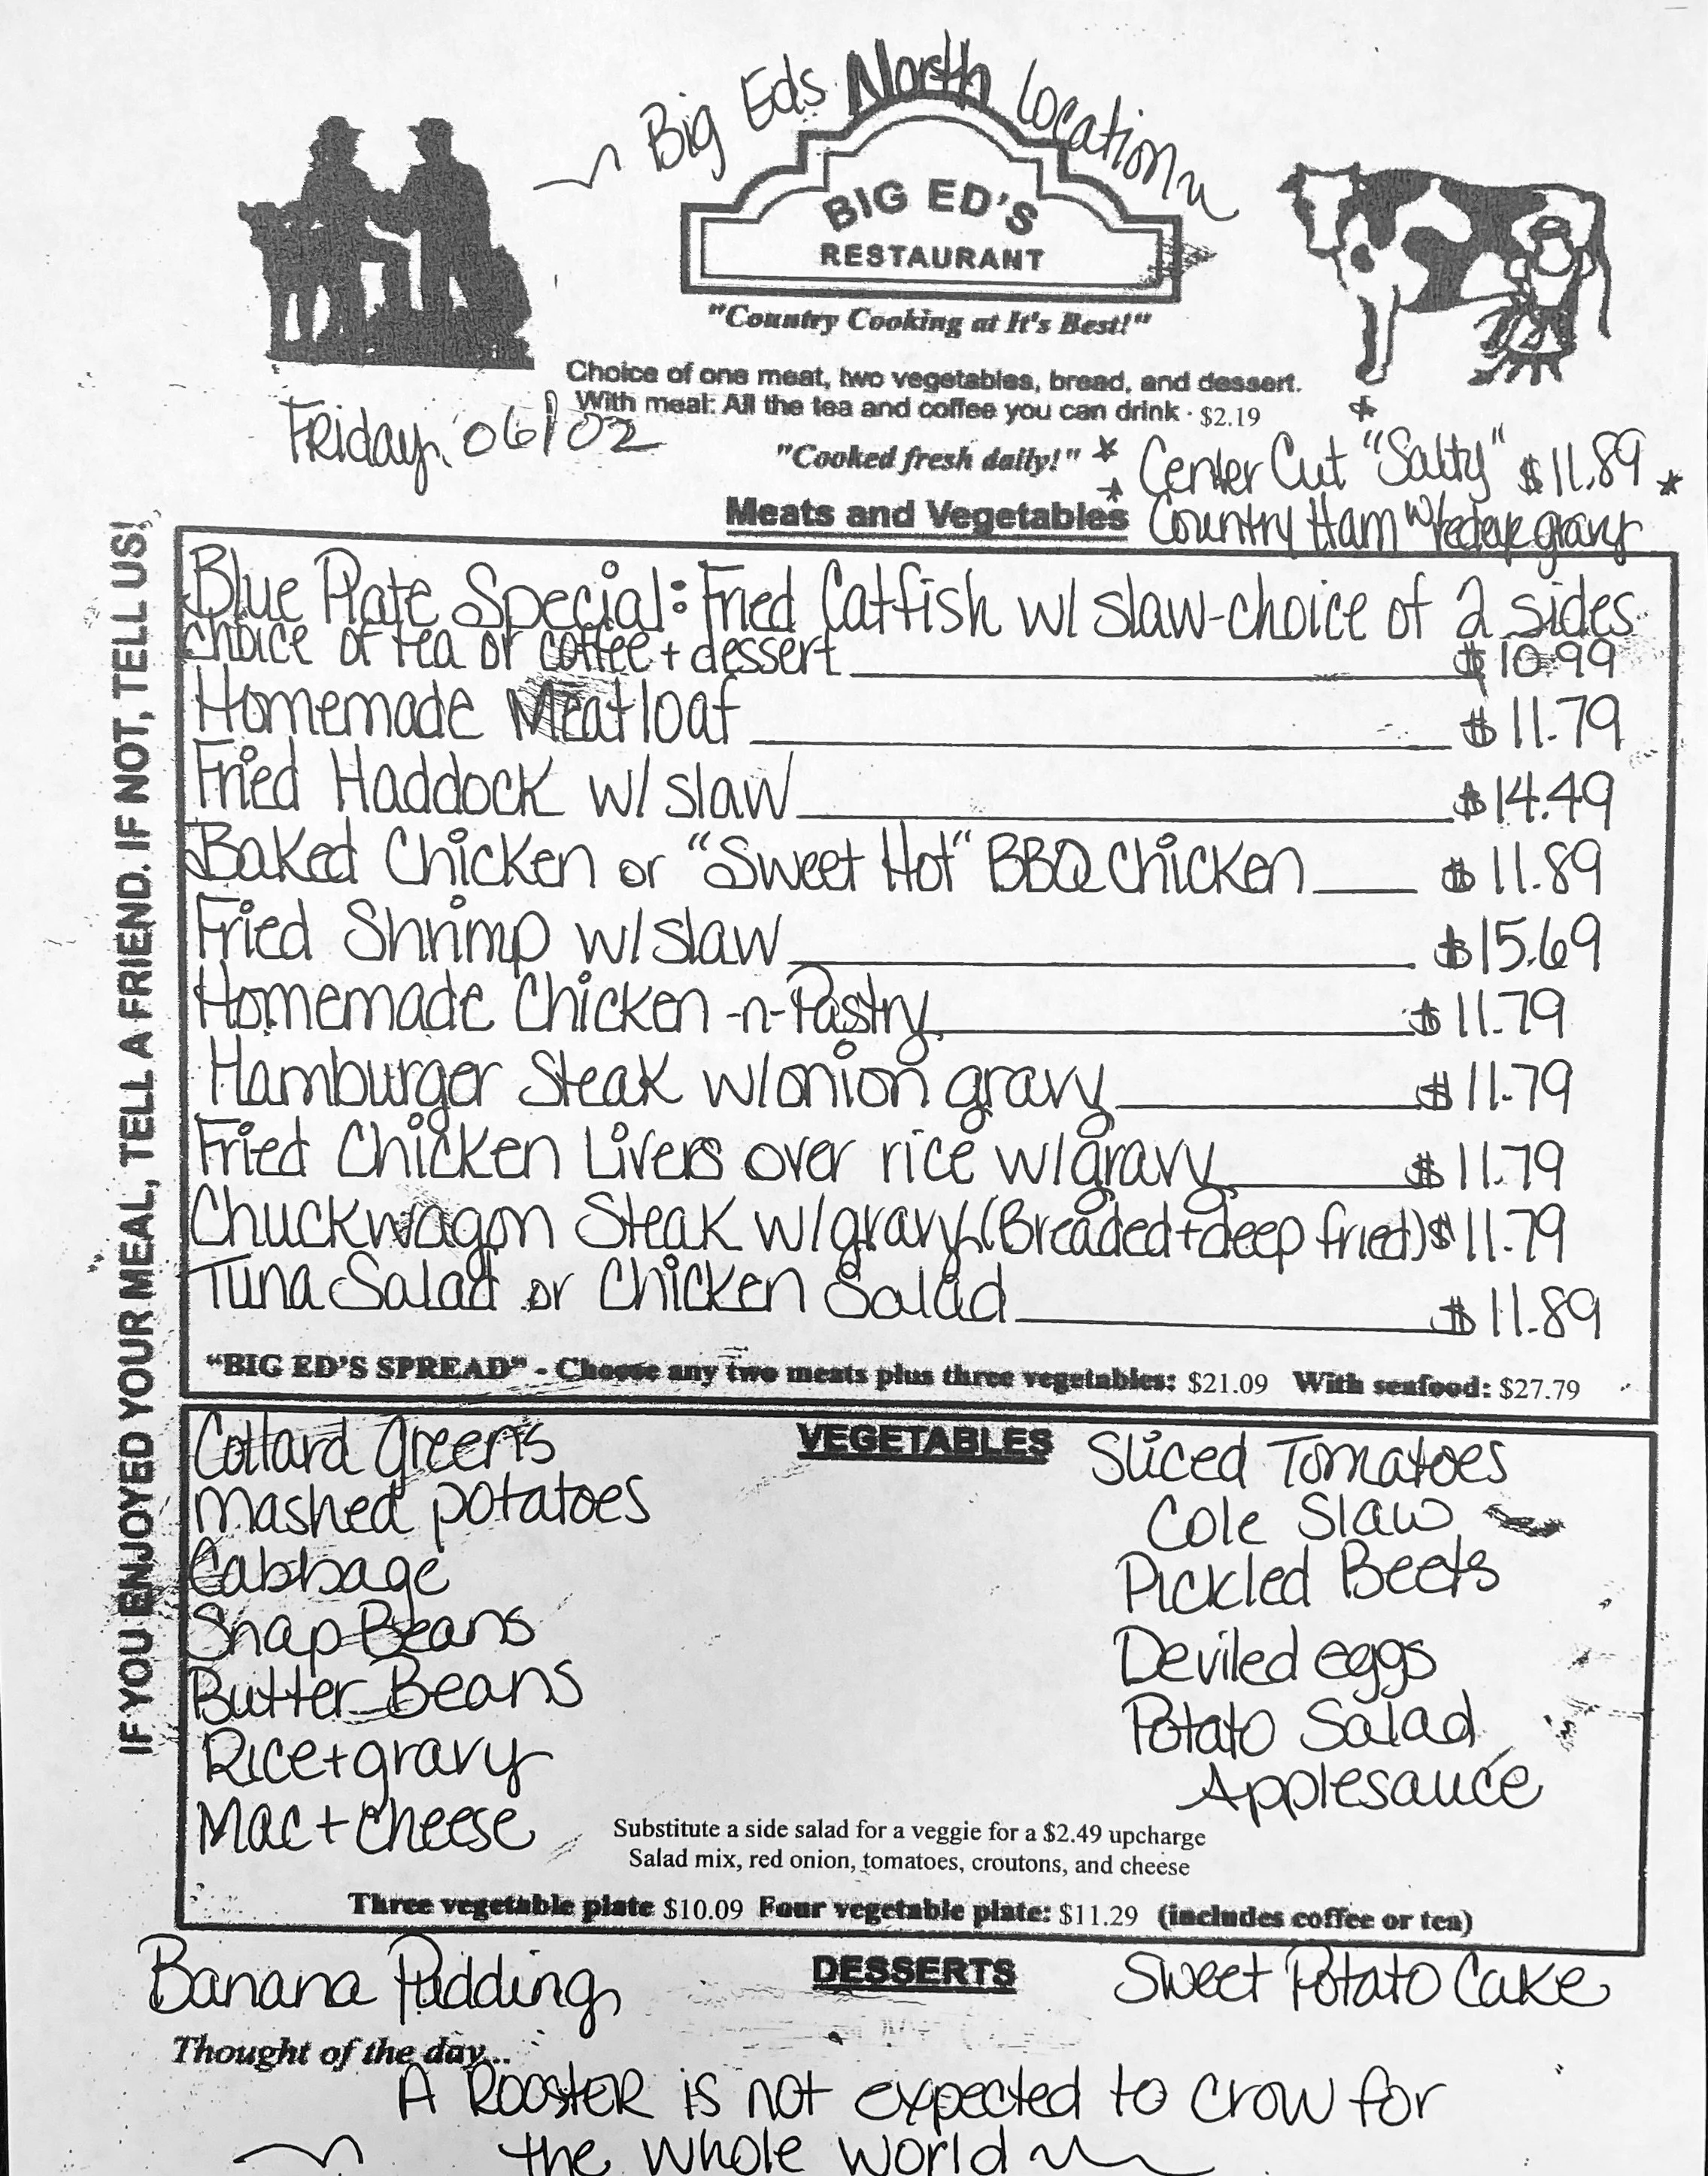 ~ Big Eds North Location ~
BIG ED'S
RESTAURANT
"Country Cooking at It's Best!"
Choice of one meat, two vegetables, bread, and dessert.
With meal: All the tea and coffee you can drink · $2.19
Friday, 06/02
"Cooked fresh daily!"
* Center Cut "Salty" $11.89 *
Country Ham w/redeye gravy
Meats and Vegetables
IF YOU ENJOYED YOUR MEAL, TELL A FRIEND. IF NOT, TELL US!
Blue Plate Special: Fried Catfish w/ slaw-choice of 2 sides
choice of tea or coffee + dessert $10.99
Homemade Meatloaf $11.79
Fried Haddock w/ slaw $14.49
Baked Chicken or "Sweet Hot" BBQ Chicken $11.89
Fried Shrimp w/slaw $15.69
Homemade Chicken -n- Pastry $11.79
Hamburger Steak w/onion gravy $11.79
Fried Chicken Livers over rice w/gravy $11.79
Chuckwagon Steak w/gravy (Breaded + deep fried) $11.79
Tuna Salad or Chicken Salad $11.89
"BIG ED'S SPREAD" - Choose any two meats plus three vegetables: $21.09 With seafood: $27.79
VEGETABLES
Collard Greens
Mashed potatoes
Cabbage
Snap Beans
Butter Beans
Rice + gravy
Mac + cheese
Sliced Tomatoes
Cole Slaw
Pickled Beets
Deviled eggs
Potato Salad
Applesauce
Substitute a side salad for a veggie for a $2.49 upcharge
Salad mix, red onion, tomatoes, croutons, and cheese
Three vegetable plate $10.09 Four vegetable plate: $11.29 (includes coffee or tea)
DESSERTS
Banana Pudding
Sweet Potato Cake
Thought of the day...
A Rooster is not expected to crow for
the whole world ~